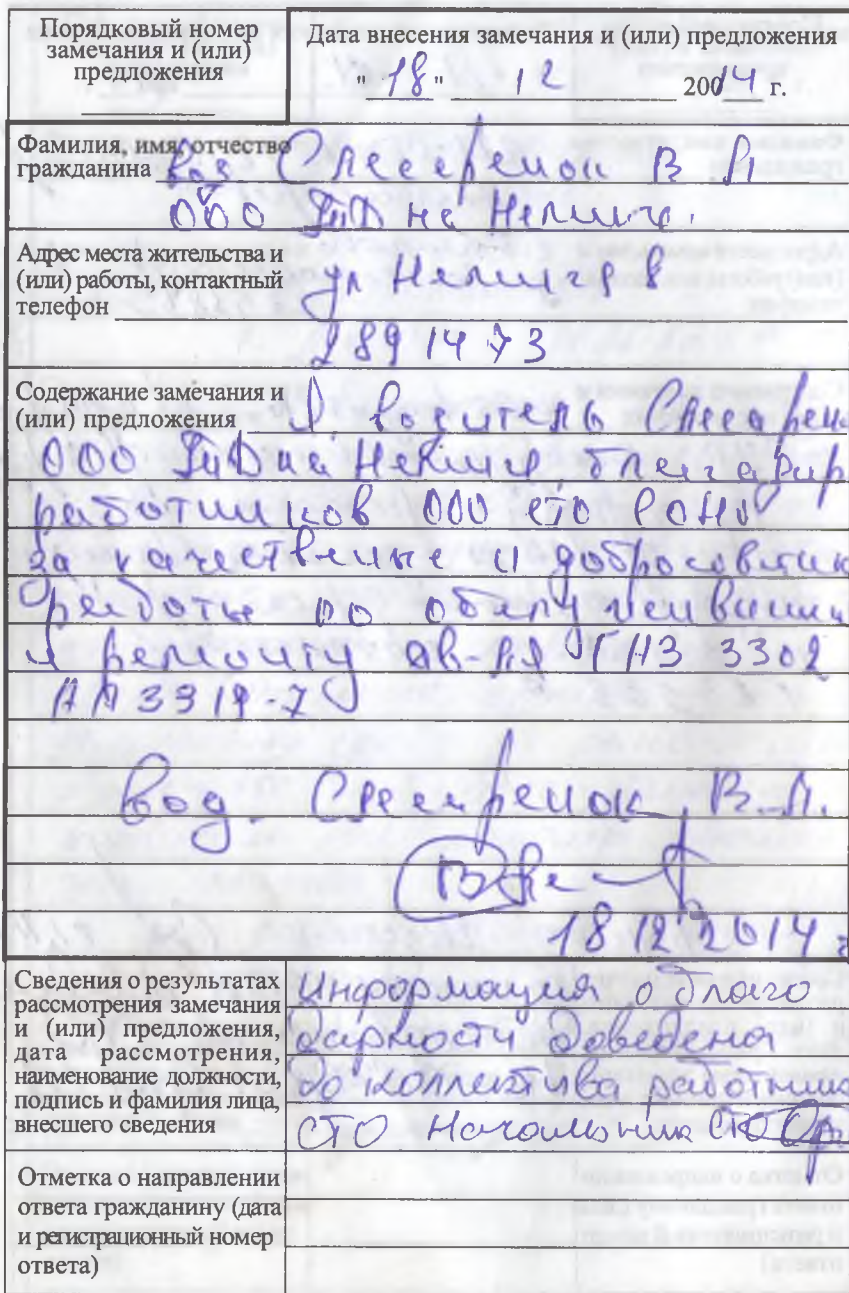 Порядковый номер
замечания и (или)
предложения
Дата внесения замечания и (или) предложения
"18" 12 2014 г.
Фамилия, имя, отчество
гражданина Слесаренок В А
ООО на
Адрес места жительства и
(или) работы, контактный
телефон
ул 8
2891473
Содержание замечания и
(или) предложения Я водитель Слесарен
ООО на
работников ООО СТО
за качественные и добросовестн
работы по обслуживанию
и ремонту ав-ля ГАЗ 3302
АА 3319-7
Вод. Слесаренок В.А.
18 12 2014 г
Сведения о результатах
рассмотрения замечания
и (или) предложения,
дата рассмотрения,
наименование должности,
подпись и фамилия лица,
внесшего сведения
Информация о благо
дарности доведена
до коллектива работник
СТО Начальник СТО
Отметка о направлении
ответа гражданину (дата
и регистрационный номер
ответа)